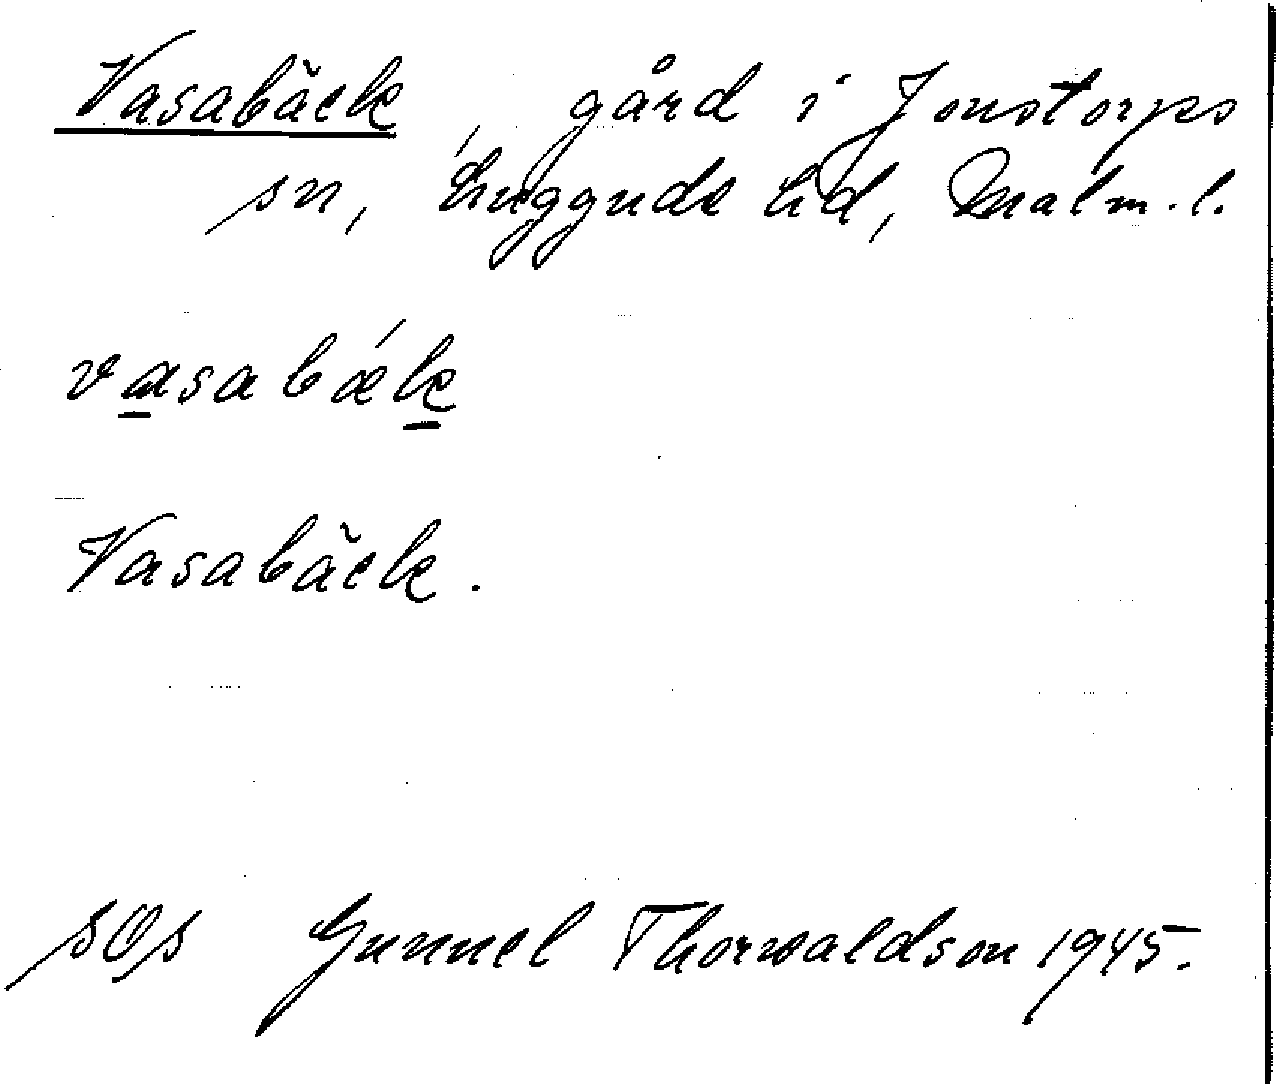 Vasabäck, gård i Jonstorps
sn, Luggude hd, Malm.l.
vasabǽk
Vasabäck.
SOS Gunnel Thorwaldson 1945.